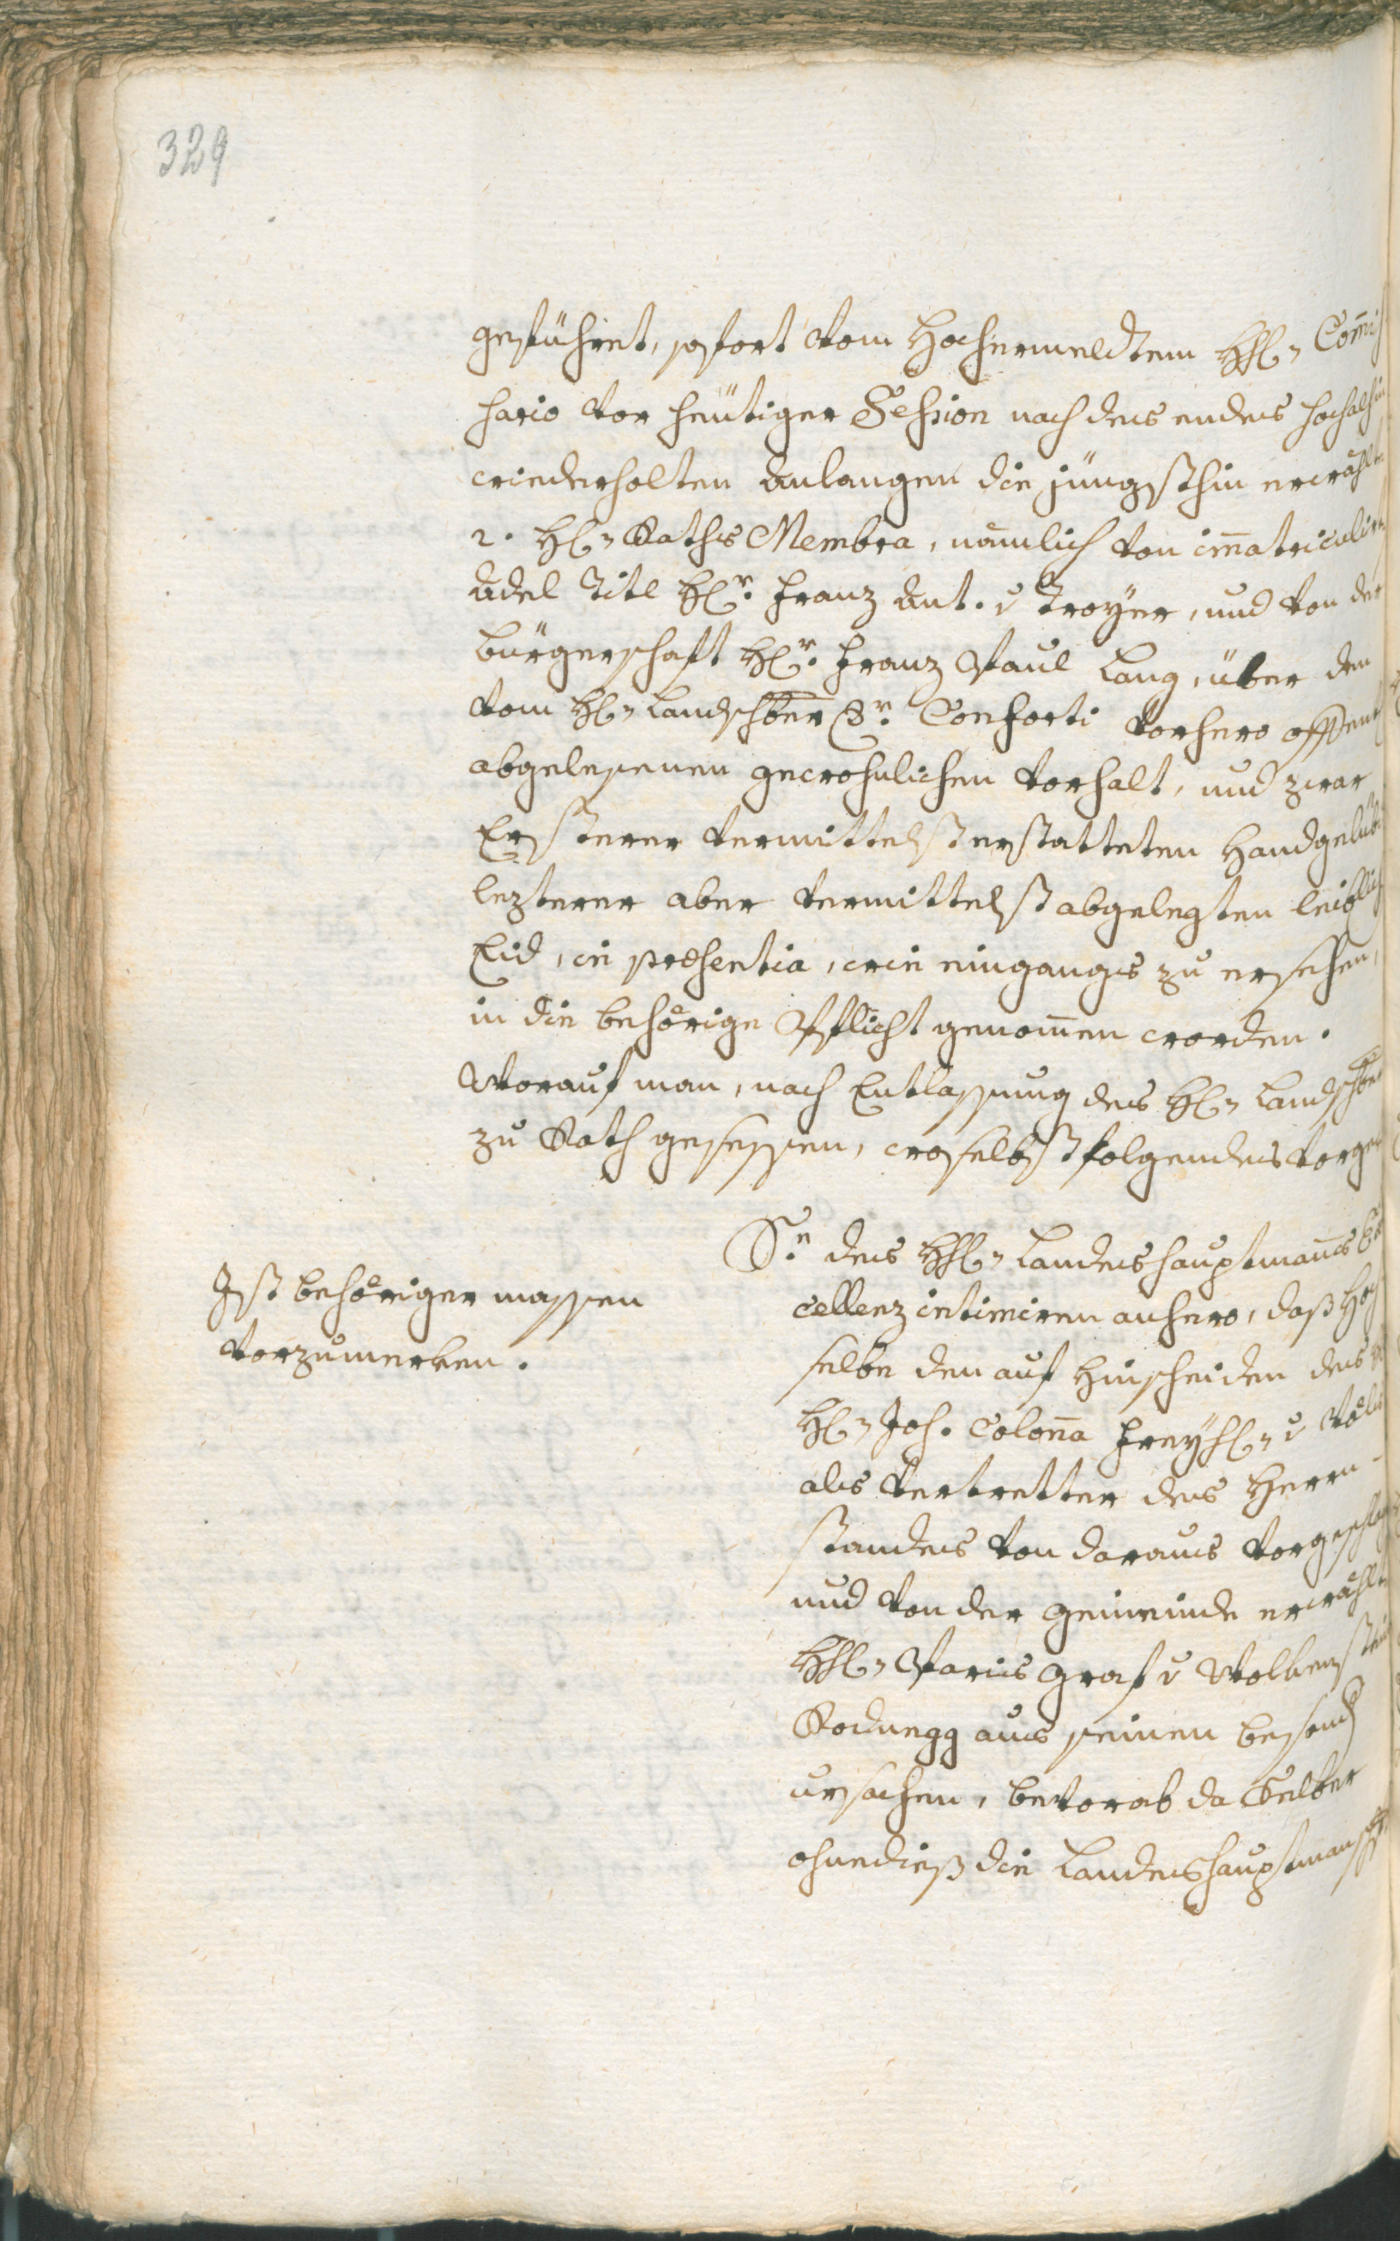 329
geführet, sofort vom Hochermeldtem HH. Comis
sario vor heutiger Session nach des endes hochalhin
wiederholten Anlangen die jüngsthin erwählte
2. H. Raths Membra, nämlich von immatriculirten
Adel Titl Hr. Franz Ant. v Troyer, und von der
Bürgerschaft Hr. Franz Paul Lang, über den
vom H. Landschber Dr. Conforti vorhero offent
abgelesenen gewohnlichen Vorhalt, und zwar
Ersterer vermittelst erstatteten Handgelübd
lezterer aber vermittelst abgelegten leiblich
Eid, in præsentia, wie eingangs zu ersehen,
in die behörige Pflicht genommen worden.
Worauf man, nach Entlassung des H. Landschber
zu Rath gesessen, woselbst folgendes vorge
Ist behöriger massen
vorzumerken.
Sn. des HH. Landeshauptmanns Ex
cellenz intimiren anhero, daß Hoch
selbe den auf Hinscheiden des
H. Jos. Colonna Freyh. v Völs
als Vertretter des Herrn-
standes von daraus vorgeschlag
und von der Gemeinde erwählt
HH. Paris Graf v Wolkenstein
Rodnegg aus seinen besond
ursachen, bevorab da Selber
ohnedieß die Landeshauptmansch